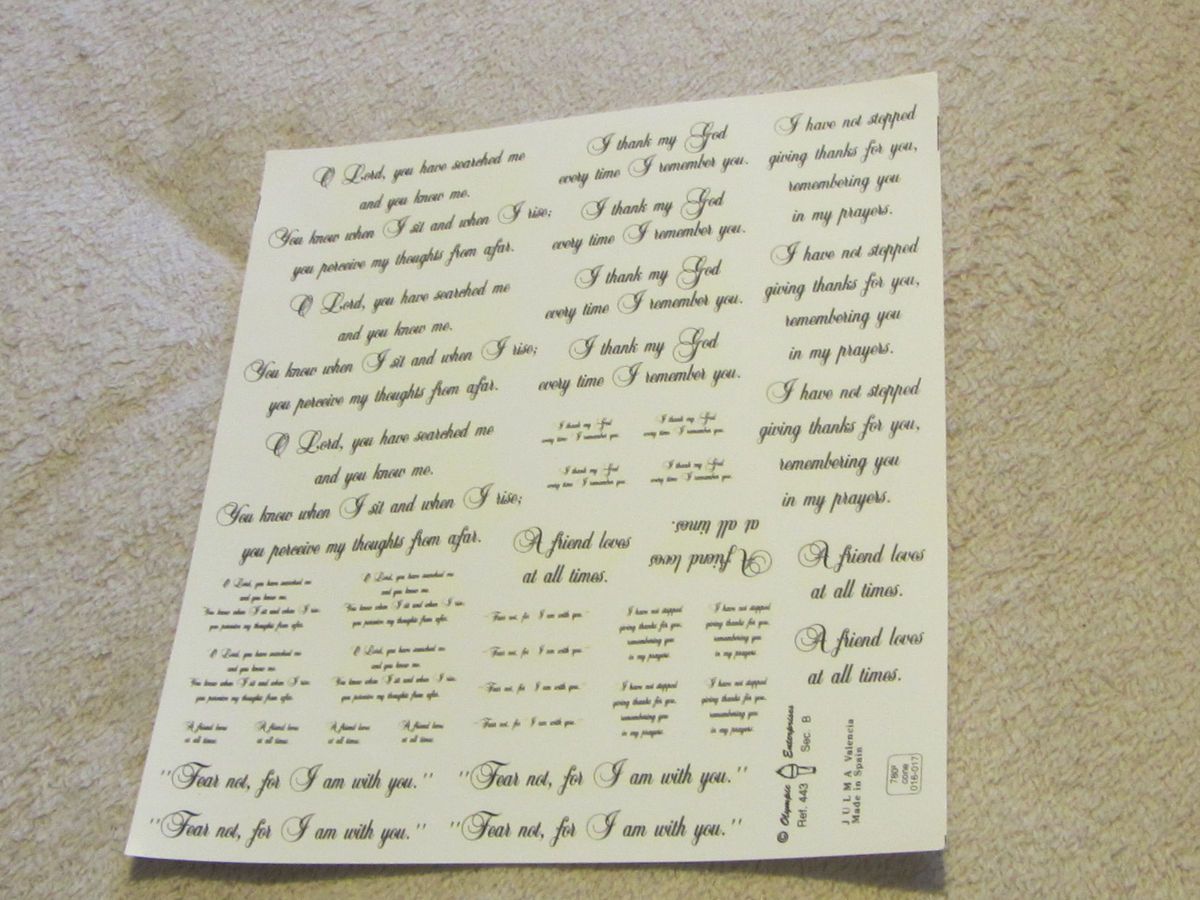 O Lord, you have searched me
and you know me.
You know when I sit and when I rise;
you perceive my thoughts from afar.
O Lord, you have searched me
and you know me.
You know when I sit and when I rise;
you perceive my thoughts from afar.
O Lord, you have searched me
and you know me.
You know when I sit and when I rise;
you perceive my thoughts from afar.
I thank my God
every time I remember you.
I thank my God
every time I remember you.
I thank my God
every time I remember you.
I thank my God
every time I remember you.
I thank my God
every time I remember you.
I thank my God
every time I remember you.
I thank my God
every time I remember you.
I thank my God
every time I remember you.
I have not stopped
giving thanks for you,
remembering you
in my prayers.
I have not stopped
giving thanks for you,
remembering you
in my prayers.
I have not stopped
giving thanks for you,
remembering you
in my prayers.
A friend loves
at all times.
A friend loves
at all times.
A friend loves
at all times.
A friend loves
at all times.
O Lord, you have searched me
and you know me.
You know when I sit and when I rise;
you perceive my thoughts from afar.
O Lord, you have searched me
and you know me.
You know when I sit and when I rise;
you perceive my thoughts from afar.
O Lord, you have searched me
and you know me.
You know when I sit and when I rise;
you perceive my thoughts from afar.
O Lord, you have searched me
and you know me.
You know when I sit and when I rise;
you perceive my thoughts from afar.
"Fear not, for I am with you."
"Fear not, for I am with you."
"Fear not, for I am with you."
"Fear not, for I am with you."
I have not stopped
giving thanks for you,
remembering you
in my prayers.
I have not stopped
giving thanks for you,
remembering you
in my prayers.
I have not stopped
giving thanks for you,
remembering you
in my prayers.
I have not stopped
giving thanks for you,
remembering you
in my prayers.
A friend loves
at all times.
A friend loves
at all times.
A friend loves
at all times.
A friend loves
at all times.
"Fear not, for I am with you."
"Fear not, for I am with you."
"Fear not, for I am with you."
"Fear not, for I am with you."
© Olympic Enterprises
Ref. 443 Sec. B
JULMA Valencia
Made in Spain
780º
cone
016-017